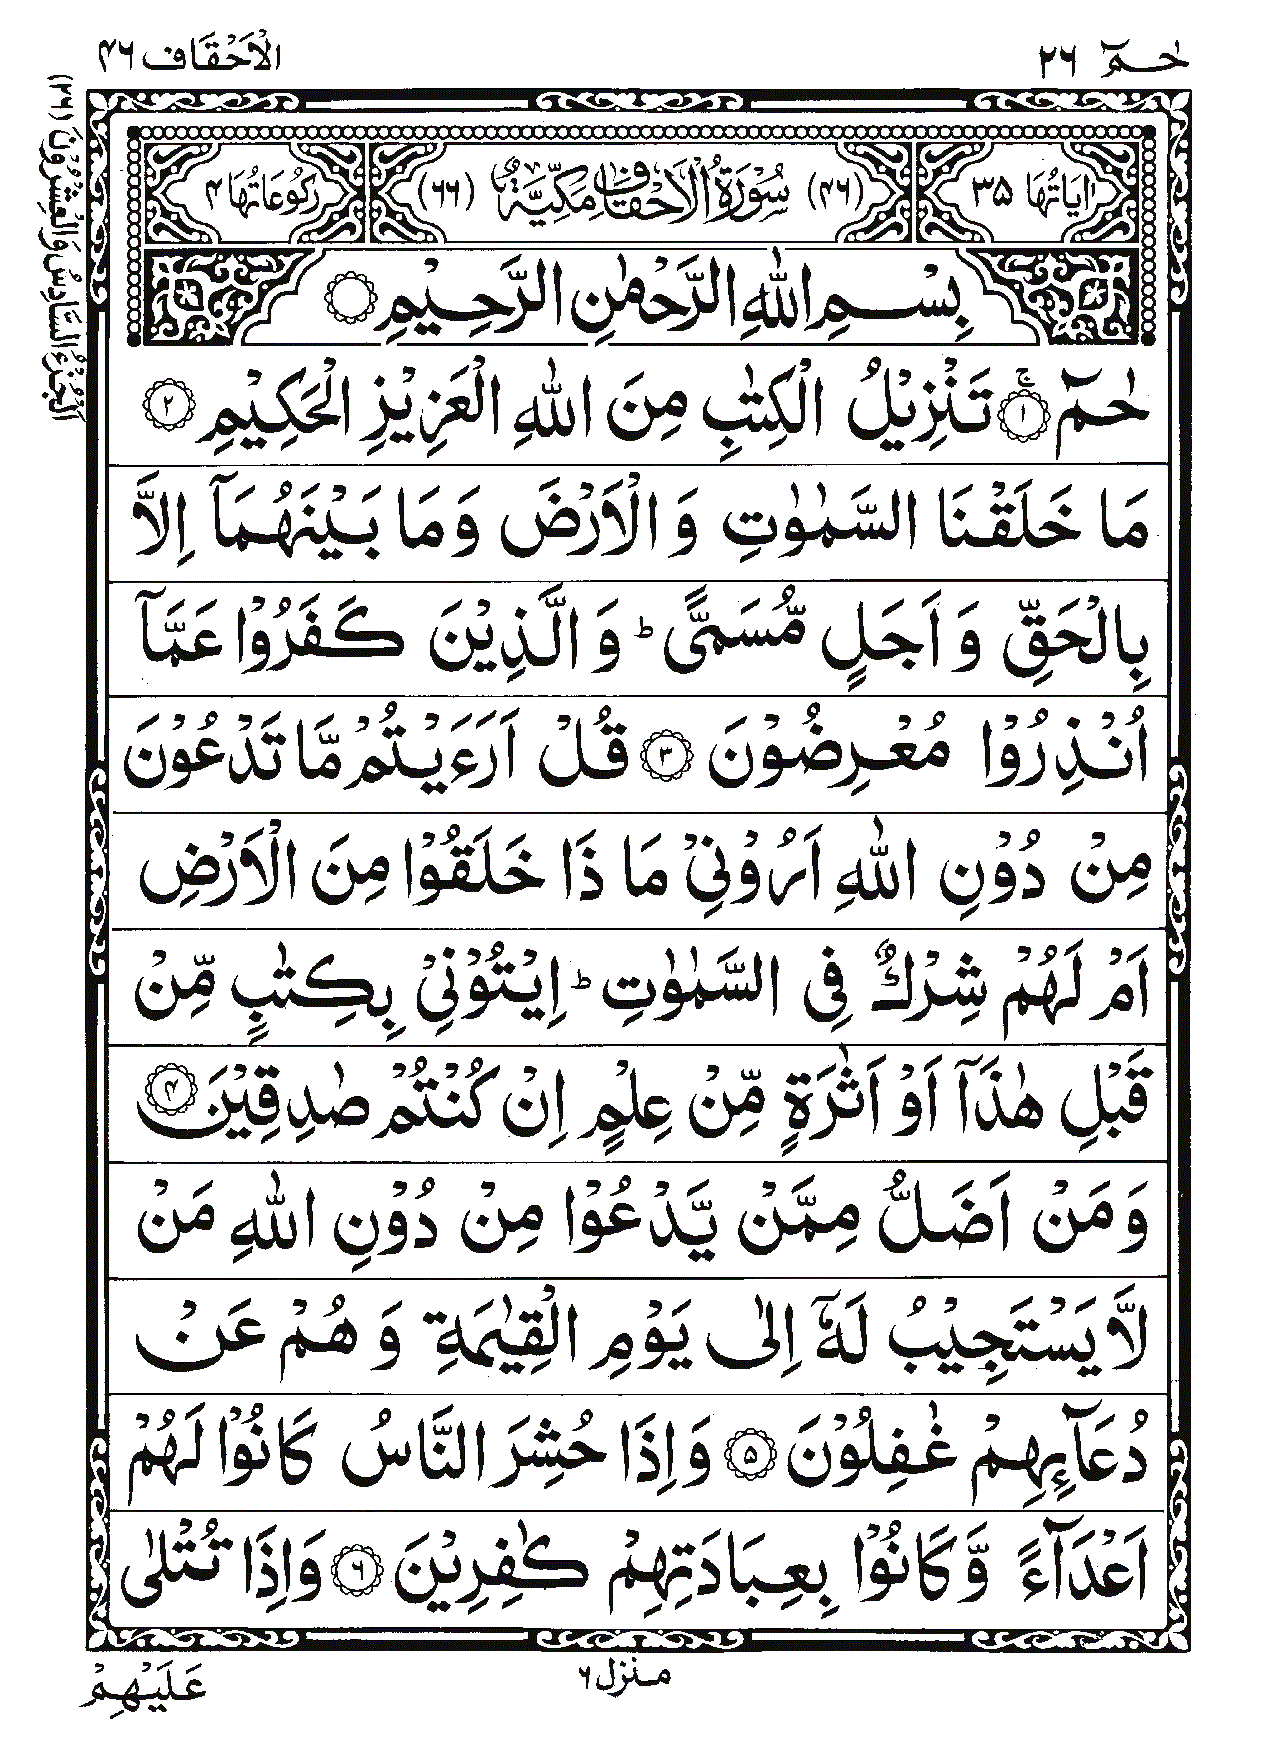 حٰمٓ ٢٦
الْاَحْقَاف ٤٦
اَلْجُزْءُ السَّادِسُ وَالْعِشْرُوْنَ (٢٦)
اٰيَاتُهَا ٣٥
(٤٦) سُوْرَةُ الْاَحْقَافِ مَكِّيَّةٌ (٦٦)
رُكُوْعَاتُهَا ٤
بِسْمِ اللّٰهِ الرَّحْمٰنِ الرَّحِيْمِ
حٰمٓ ۚ ١ تَنْزِيْلُ الْكِتٰبِ مِنَ اللّٰهِ الْعَزِيْزِ الْحَكِيْمِ ٢
مَا خَلَقْنَا السَّمٰوٰتِ وَالْاَرْضَ وَمَا بَيْنَهُمَآ اِلَّا
بِالْحَقِّ وَاَجَلٍ مُّسَمًّى ؕ وَالَّذِيْنَ كَفَرُوْا عَمَّآ
اُنْذِرُوْا مُعْرِضُوْنَ ٣ قُلْ اَرَءَيْتُمْ مَّا تَدْعُوْنَ
مِنْ دُوْنِ اللّٰهِ اَرُوْنِيْ مَا ذَا خَلَقُوْا مِنَ الْاَرْضِ
اَمْ لَهُمْ شِرْكٌ فِى السَّمٰوٰتِ ؕ اِيْتُوْنِيْ بِكِتٰبٍ مِّنْ
قَبْلِ هٰذَآ اَوْ اَثٰرَةٍ مِّنْ عِلْمٍ اِنْ كُنْتُمْ صٰدِقِيْنَ ٤
وَمَنْ اَضَلُّ مِمَّنْ يَّدْعُوْا مِنْ دُوْنِ اللّٰهِ مَنْ
لَّا يَسْتَجِيْبُ لَهٗٓ اِلٰى يَوْمِ الْقِيٰمَةِ وَهُمْ عَنْ
دُعَآئِهِمْ غٰفِلُوْنَ ٥ وَاِذَا حُشِرَ النَّاسُ كَانُوْا لَهُمْ
اَعْدَآءً وَّكَانُوْا بِعِبَادَتِهِمْ كٰفِرِيْنَ ٦ وَاِذَا تُتْلٰى
منزل ٦
عَلَيْهِمْ